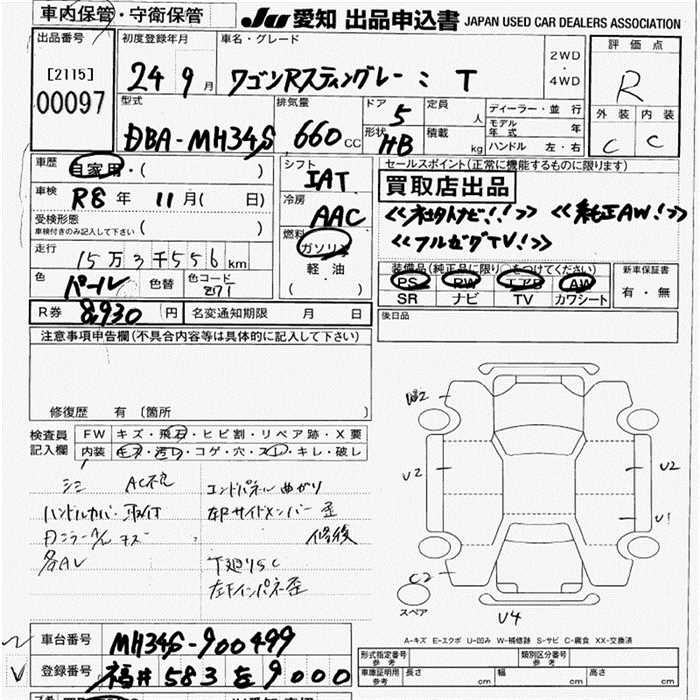 車内保管・守衛保管
JU 愛知 出品申込書 JAPAN USED CAR DEALERS ASSOCIATION
出品番号
[2115]
00097
初度登録年月
24 9月
車名・グレード
ワゴンRスティングレー : T
2WD
・
4WD
評価点
R
外装 内装
C C
型式
DBA-MH34S
排気量
660 CC
ドア
5
形状
HB
定員
人
積載
kg
ディーラー・並行
モデル年式 年
ハンドル 左・右
車歴
自家用・( )
車検
R8年 11月( 日)
受検形態
車検付きのみ記入して下さい ( )
走行
15万3千556km
色
パール
色替
色コード
Z7T
シフト
IAT
冷房
AAC
燃料
ガソリン
軽油
( )
セールスポイント(正常に機能するものに限ります)
買取店出品
<<社外ナビ!!>> <<純正AW!>>
<<フルセグTV!>>
装備品(純正品に限り○をつけてください)
PS PW エアB AW
SR ナビ TV カワシート
新車保証書
有・無
R券 8,930円
名変通知期限 月 日
後日品
注意事項申告欄(不具合内容等は具体的に記入して下さい)
修復歴 有 〔箇所 〕
検査員記入欄
FW キズ・飛石・ヒビ割・リペア跡・X要
内装 キズ・汚れ・コゲ・穴・スレ・キレ・破レ
シミ AC不良
ハンドルカバー取付
エンドパネル曲がり
左Rサイドメンバー歪
修後
下廻りSC
左Fインパネ歪
W2
U2
U2
U1
C2
U4
スペア
A-キズ E-エクボ U-凹み W-補修跡 S-サビ C-腐食 XX-交換済
車台番号 MH34S-900499
登録番号 福井 583 を 9000
形式指定番号
参考
類別区分番号
参考
車庫証明用
参考
長さ cm
幅 cm
高さ cm